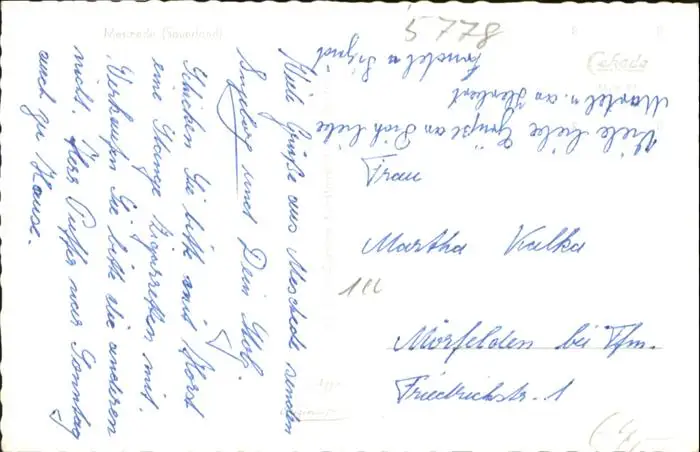 Meschede (Sauerland)
5778
Cekade
Viele Grüße aus Meschede senden
Ingeborg und Dein Rolf.
Schicken Sie bitte mit Horst
eine Stange Zigaretten mit.
Verkaufen Sie bitte die anderen
nicht. Herr Puffer war Sonntag
auch zu Hause.
Viele liebe Grüße an Dich liebe
u. an Herbert
u. Sigrid
Frau
Martha Kalka
Mörfelden bei Ffm.
Friedrichstr. 1